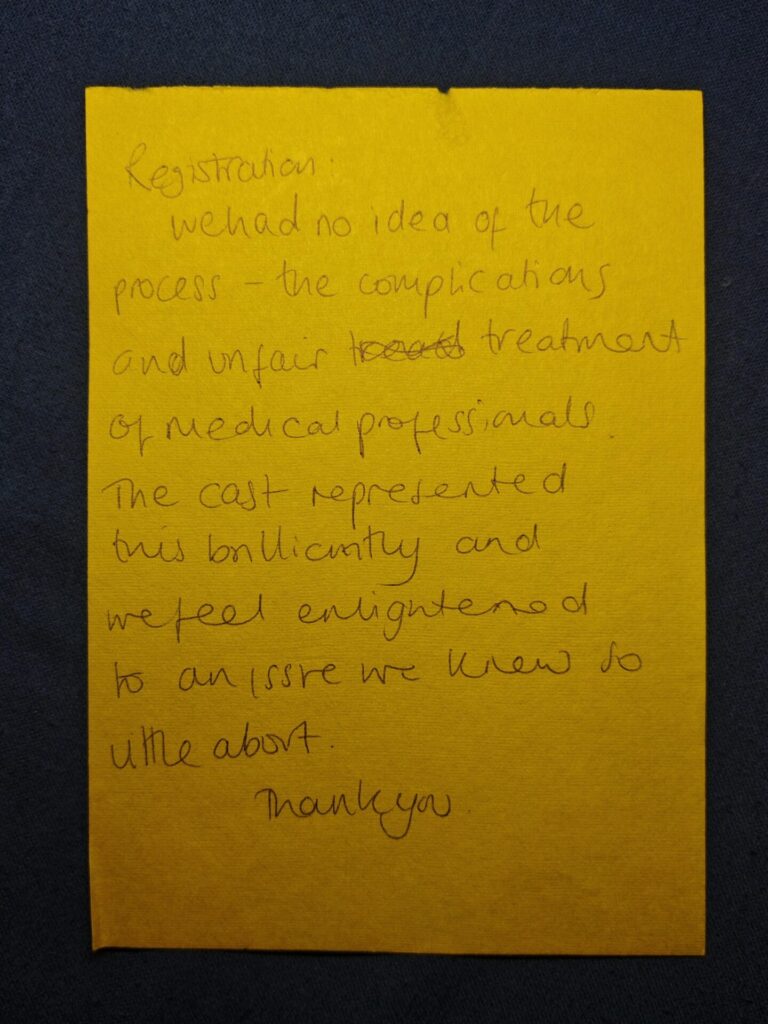 Registration:
we had no idea of the
process - the complications
and unfair treatment
of medical professionals.
The cast represented
this brilliantly and
we feel enlightened
to an issue we knew so
little about.
Thank you.